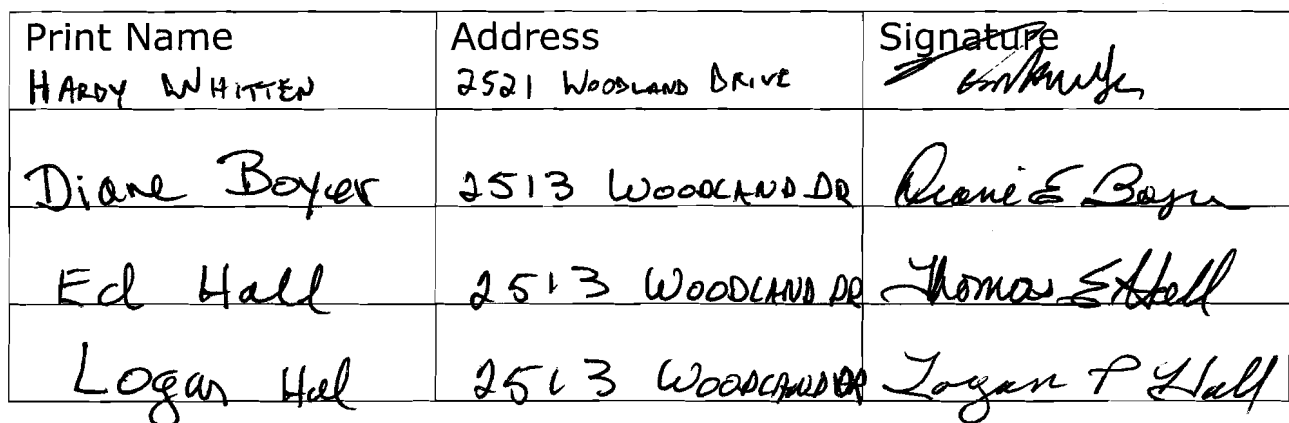 Print Name Address Signature
HARDY WHITTEN 2521 WOODLAND DRIVE
Diane Boyer 2513 WOODLAND DR Diane E Boyer
Ed Hall 2513 WOODLAND DR Thomas E Hall
Logan Hall 2513 WOODLAND DR Logan P Hall